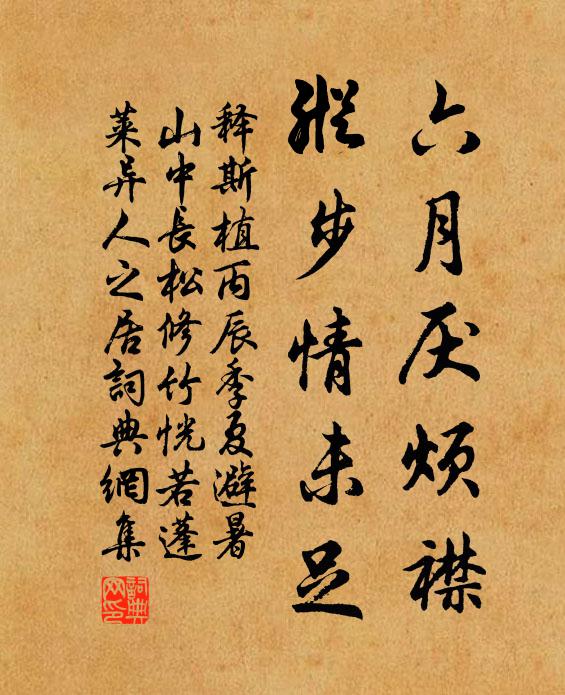 六月厌烦襟
纵步情未足
释斯植丙辰季夏避暑
山中長松修竹恍若蓬
莱异人之居詞典網集
詞典网印